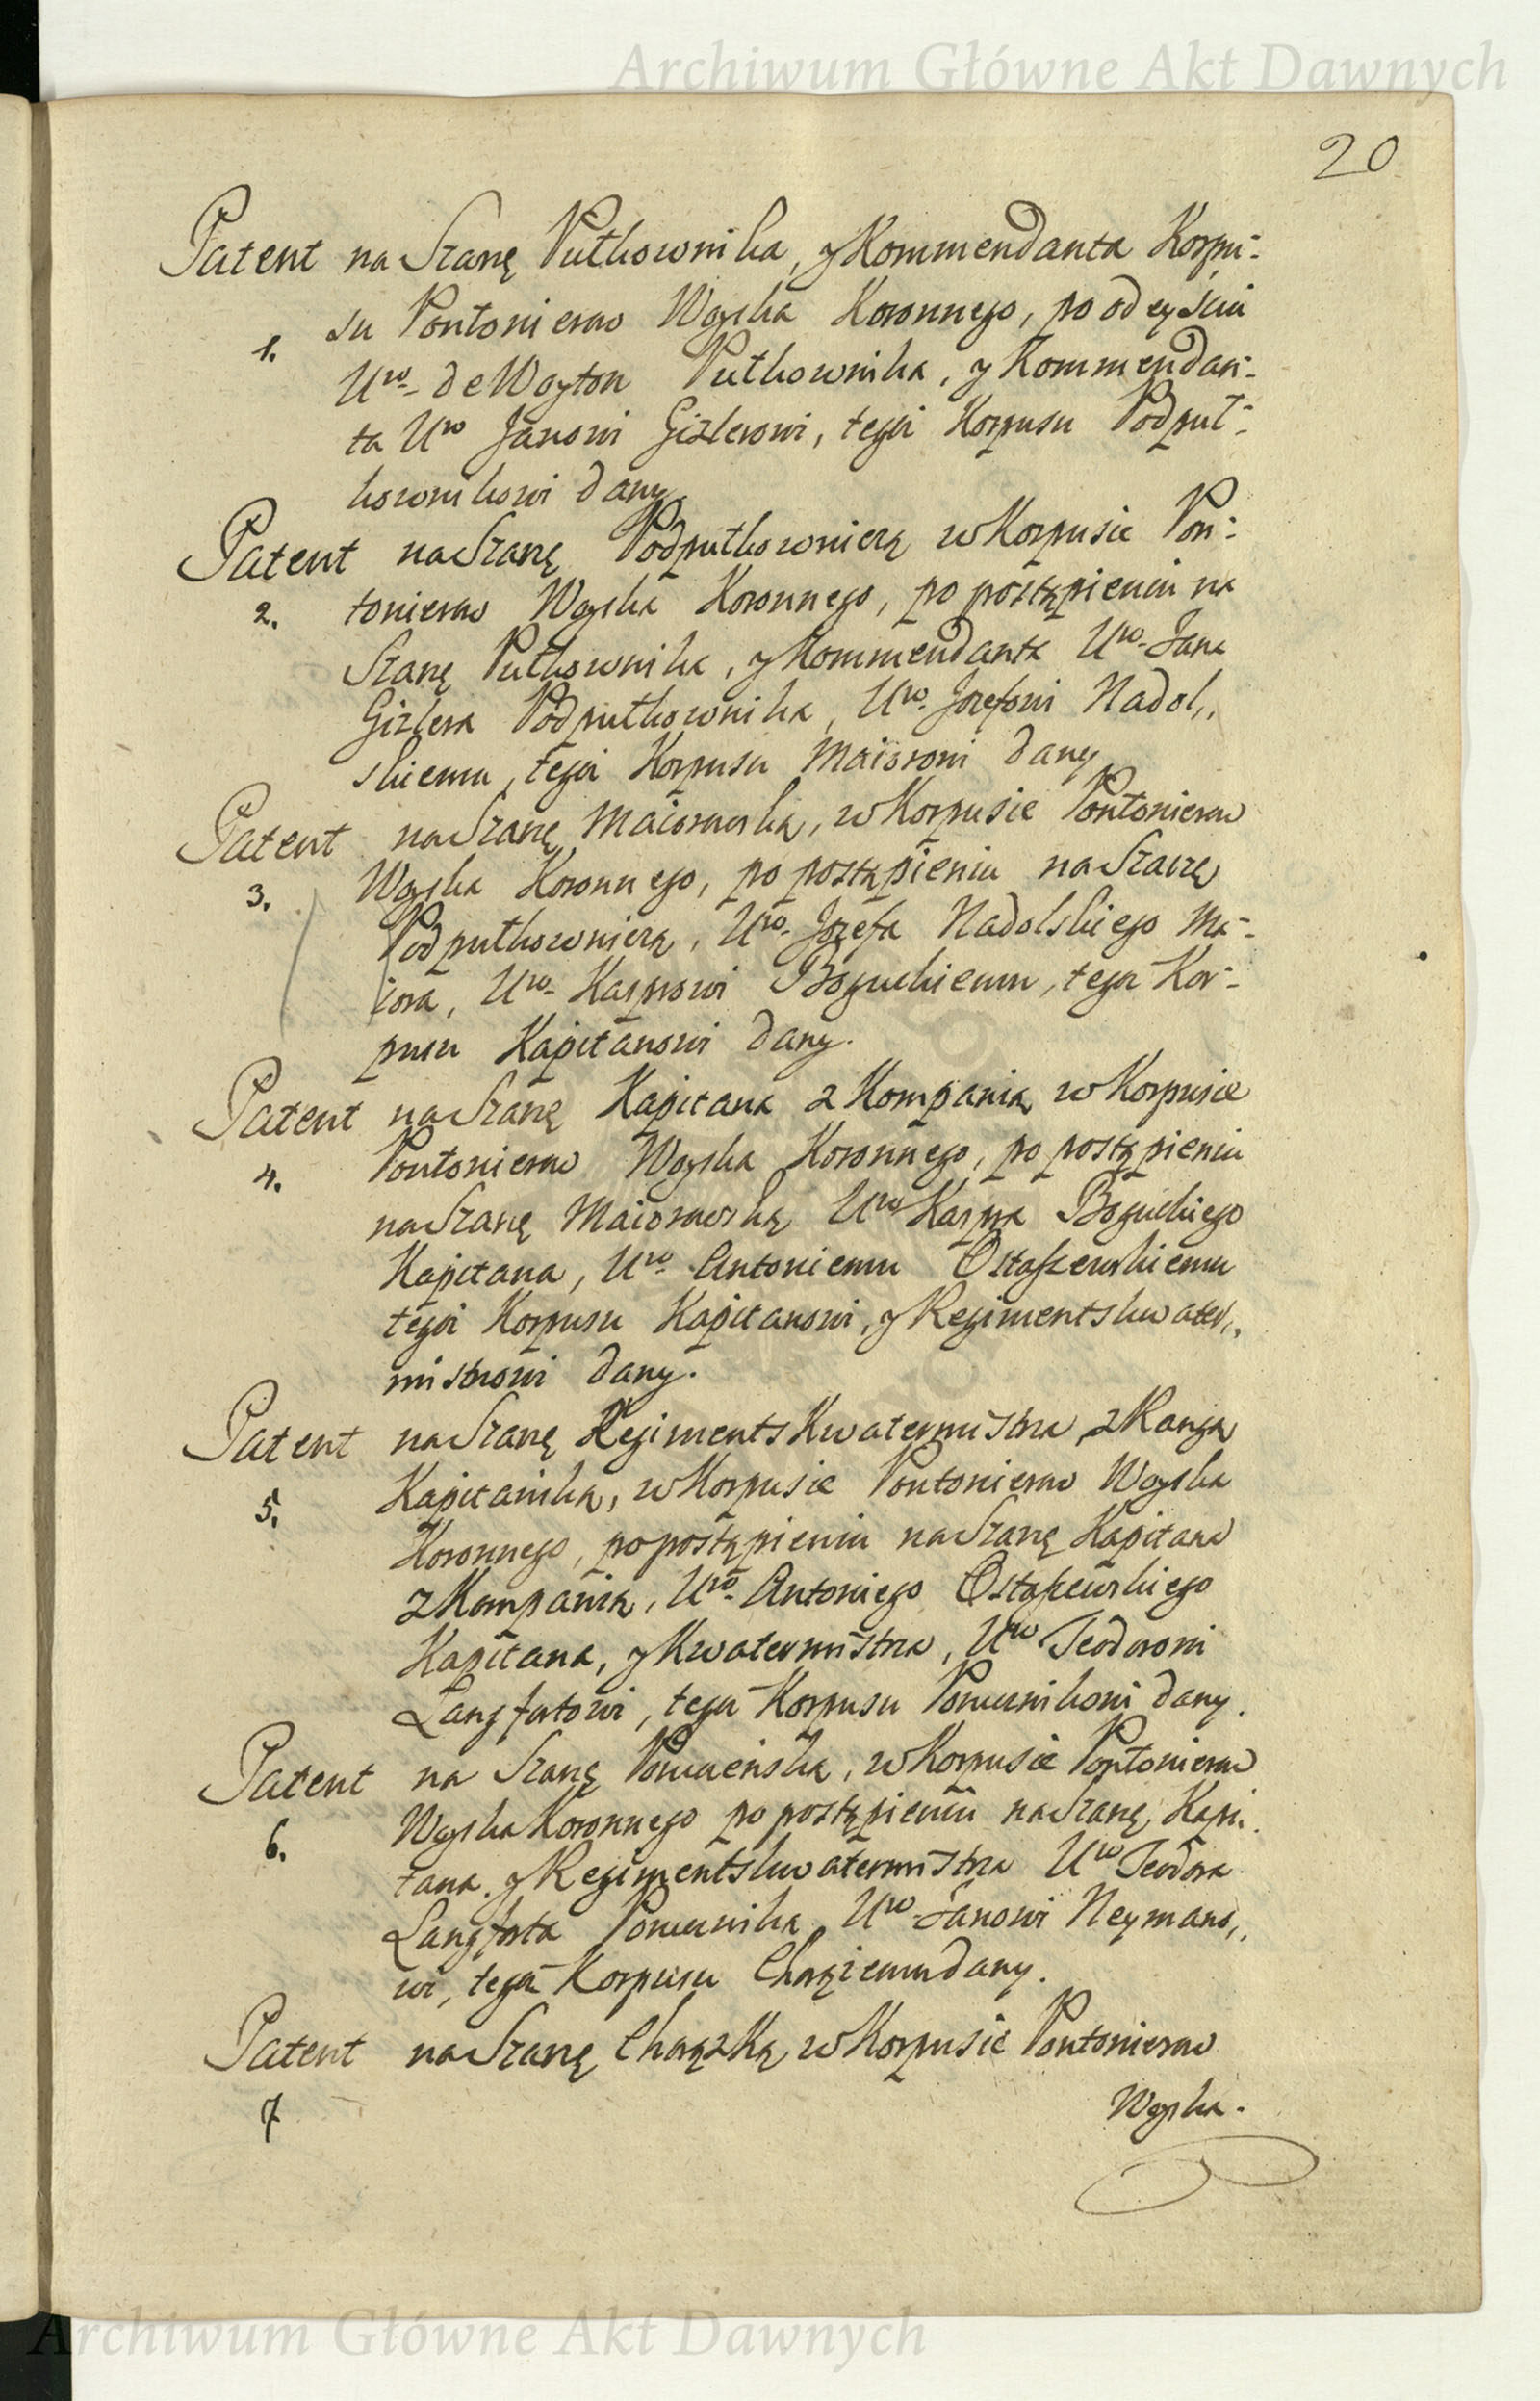 Archiwum Główne Akt Dawnych
20
Patent na Szarżę Pułkownika, y Kommendanta Korpu-
1. su Pontonierow Woyska Koronnego, po odeyściu
Uro de Woyton Pułkownika, y Kommendan-
ta Uro Janowi Gizlerowi, tegoż Korpusu Podpuł-
kownikowi dany.
Patent na Szarżę Podpułkowniczą w Korpusie Pon-
2. tonierow Woyska Koronnego, po postąpieniu na
Szarżę Pułkownika, y Kommendanta Uro Jana
Gizlera Podpułkownika, Uro Jozefowi Nadol,,
skiemu, tegoż Korpusu Maiorowi dany
Patent na Szarżę Maiorowską, w Korpusie Pontonierow
3. Woyska Koronnego, po postąpieniu na Szarżę
Podpułkowniczą, Uro Jozefa Nadolskiego Ma-
iora, Uro Kasprowi Boguckiemu, tegoż Kor-
pusu Kapitanowi dany.
Patent na Szarżę Kapitana z Kompanią w Korpusie
4. Pontonierow Woyska Koronnego, po postąpieniu
na Szarżę Maiorowską Uro Kaspra Boguckiego
Kapitana, Uro Antoniemu Ostaszewskiemu
tegoż Korpusu Kapitanowi, y Regimentskwater,,
mistrzowi dany.
Patent na Szarżę Regiments Kwatermistrza, z Rangą
5. Kapitańską, w Korpusie Pontonierow Woyska
Koronnego, po postąpieniu na Szarżę Kapitana
z Kompanią, Uro Antoniego Ostaszewskiego
Kapitana, y Kwatermistrza, Uro Teodorowi
Langfortowi, tegoż Korpusu Porucznikowi dany.
Patent na Szarżę Poruczeńską, w Korpusie Pontonierow
6. Woyska Koronnego po postąpieniu na Szarżę Kapi.
tana y Regimentskwatermistrza Uro Teodora
Langforta Porucznika Uro Janowi Neymano,,
wi, tegoż Korpusu Chorążemu dany.
Patent na Szarżę Chorążką w Korpusie Pontonierow
7
Woyska.
Archiwum Główne Akt Dawnych